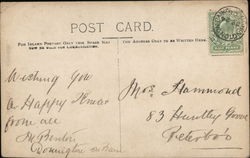 POST CARD.
FOR INLAND POSTAGE ONLY THIS SPACE MAY
NOW BE USED FOR COMMUNICATION.
THE ADDRESS ONLY TO BE WRITTEN HERE.
Wishing You
a Happy Xmas
from all
Mrs Hammond
83 Huntly Grove
Peterboro